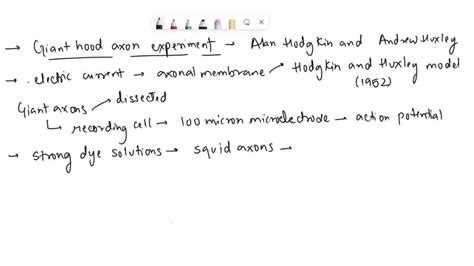 → Giant hood axon experiment → Alan Hodgkin and Andrew Huxley
→ . electric current → axonal membrane → Hodgkin and Huxley model
(1952)
Giant axons → dissected
↳ recording cell → 100 micron microelectrode → action potential
→ strong dye solutions → squid axons →